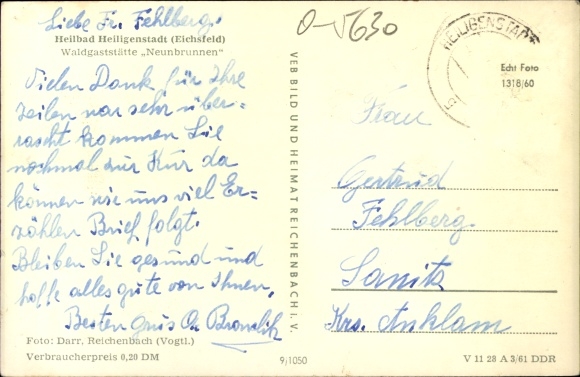 Liebe Fr. Fehlberg.
Heilbad Heiligenstadt (Eichsfeld)
Waldgaststätte „Neunbrunnen"
Vielen Dank für Ihre
Zeilen war sehr über-
rascht kommen Sie
nochmal zur Kur da
können wir uns viel Er-
zählen Brief folgt.
Bleiben Sie gesund und
hoffe alles gute von Ihnen,
Besten Grus
Foto: Darr, Reichenbach (Vogtl.)
Verbraucherpreis 0,20 DM
VEB BILD UND HEIMAT REICHENBACH i. V.
9/1050
0-5630
HEILIGENSTADT
Echt Foto
1318/60
Frau
Gertrud
Fehlberg.
Sanitz
Krs. Anklam
V 11 28 A 3/61 DDR